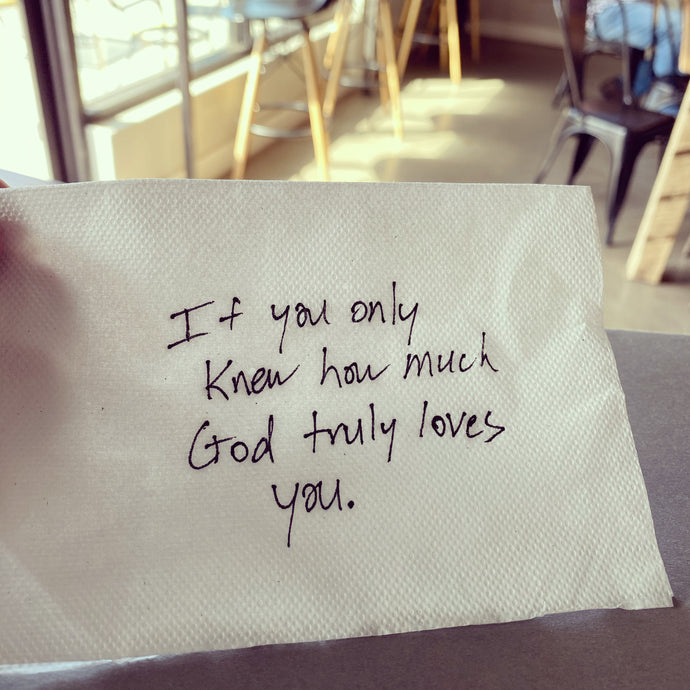 If you only
knew how much
God truly loves
you.